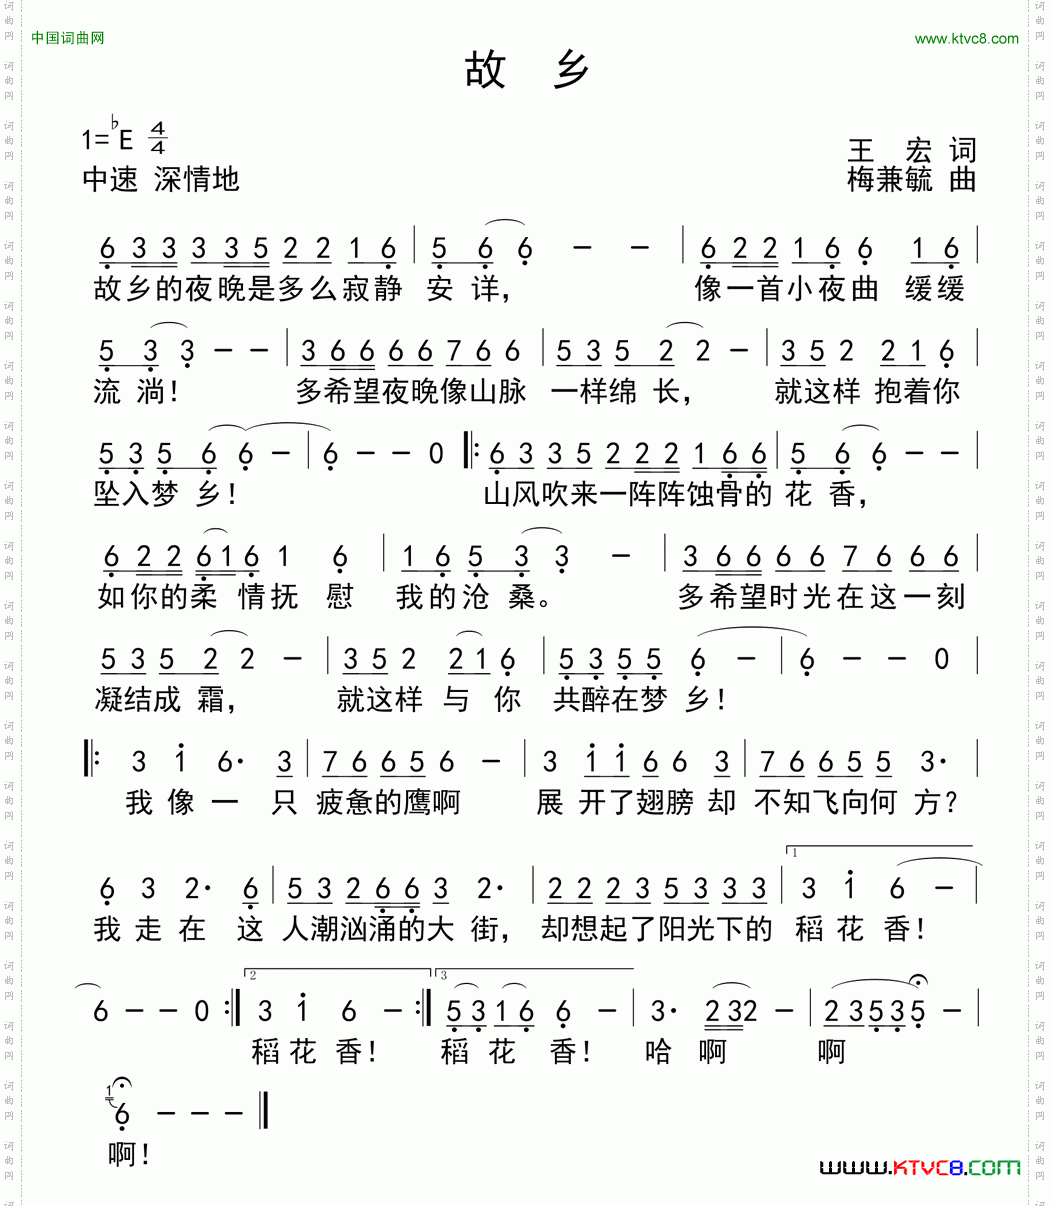 中国词曲网 www.ktvc8.com
故 乡
1=♭E 4/4
王 宏 词
中速 深情地
梅兼毓 曲
6 3 3 3 3 5 2 2 1 6 | 5 6 6 - - | 6 2 2 1 6 6 1 6 |
故乡的夜晚是多么寂静 安 详， 像一首小夜曲 缓缓
5 3 3 - - | 3 6 6 6 6 7 6 6 | 5 3 5 2 2 - | 3 5 2 2 1 6 |
流 淌！ 多希望夜晚像山脉 一样绵 长， 就这样 抱着你
5 3 5 6 6 - | 6 - - 0 ‖: 6 3 3 5 2 2 2 1 6 6 | 5 6 6 - - |
坠入梦 乡！ 山风吹来一阵阵蚀骨的 花 香，
6 2 2 6 1 6 1 6 | 1 6 5 3 3 - | 3 6 6 6 6 7 6 6 6
如你的柔 情抚 慰 我的沧 桑。 多希望时光在这一刻
5 3 5 2 2 - | 3 5 2 2 1 6 | 5 3 5 5 6 - | 6 - - 0 |
凝结成 霜， 就这样 与 你 共醉在梦 乡！
‖: 3 1 6· 3 | 7 6 6 5 6 - | 3 1 1 6 6 3 | 7 6 6 5 5 3· |
我 像 一 只 疲惫的鹰啊 展 开了翅膀 却 不知飞向何 方？
6 3 2· 6 | 5 3 2 6 6 3 2· | 2 2 2 3 5 3 3 3 | 1 3 1 6 - |
我 走 在 这 人潮汹涌的大 街， 却想起了阳光下的 稻 花 香！
6 - - 0 :‖ 2 3 1 6 - :‖ 3 5 3 1 6 6 - | 3· 2 3 2 - | 2 3 5 3 5 - |
稻 花 香！ 稻 花 香！ 哈 啊 啊
1 6 - - - ‖
啊！
www.KTVC8.COM